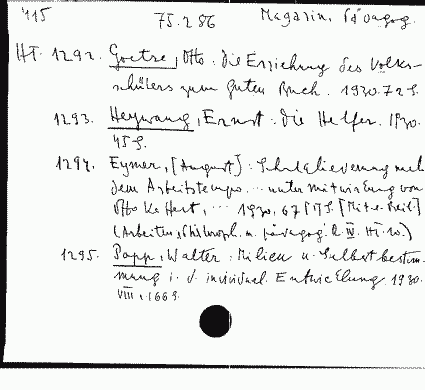 415 75.286 Magazin, Pädagog.
HI. 1292. Goetze, Otto: Die Erziehung des Volks-
schülers zum guten Buch. 1930. 72 S.
1293. Heywang, Ernst: Die Helfer. 1930.
45 S.
1294. Eymer, [August]: Schulgliederung nach
dem Arbeitstempo ... unter Mitwirkung von
Otto ... 1930, 67 S. [Mit e. Beil.]
(Arbeiten, Philosoph. u. pädagog. R. IV. H. 10.)
1295. Popp, Walter: Milieu u. Selbstbestim-
mung i. d. individuel. Entwicklung. 1930.
VIII, 166 S.